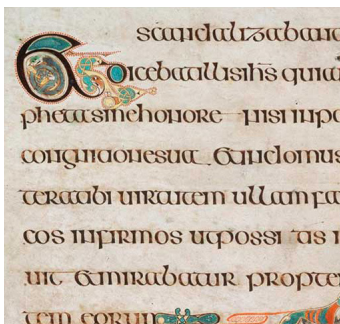 scandalizaban
Et dicebat illis ihs quia
pheta sine honore nisi inpa
cognatione sua et in domus
terat ibi uirtutem ullam fa
cos infirmos inpossitis
uit et mirabatur propter
tem eorum